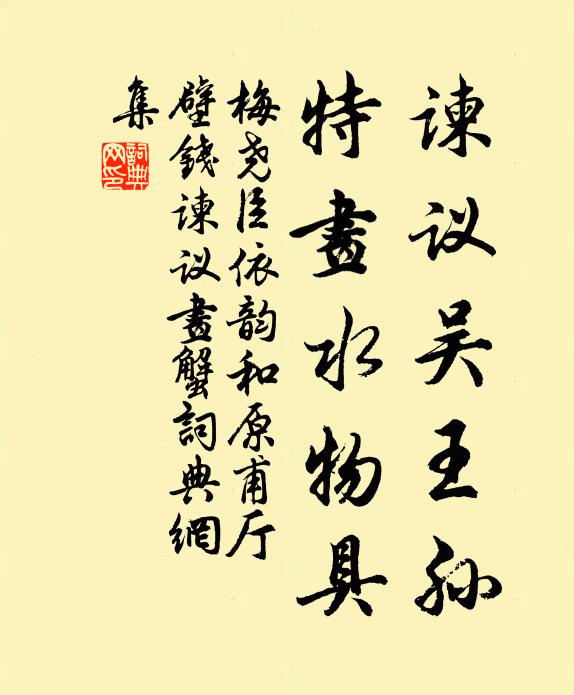 谏议吴王孙
特畫水物具
梅尧臣依韵和原甫厅
壁錢谏议畫蟹詞典網
集
詞典網印